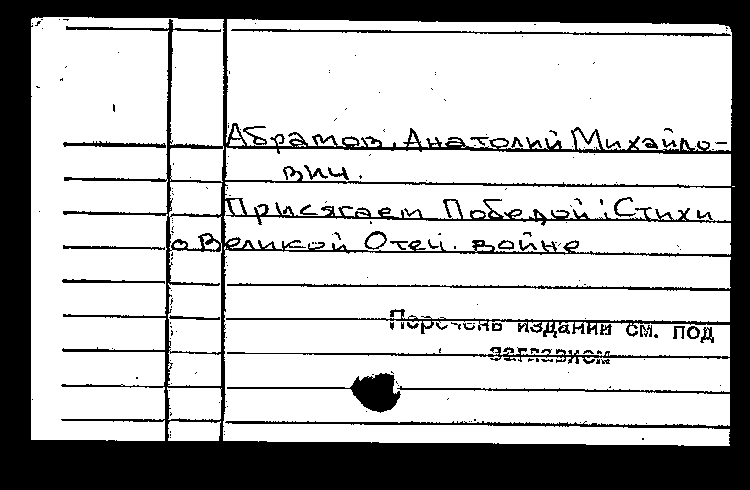 Абрамов, Анатолий Михайло-
вич.
Присягаем Победой: Стихи
о Великой Отеч. войне
Перечень изданий см. под
заглавием